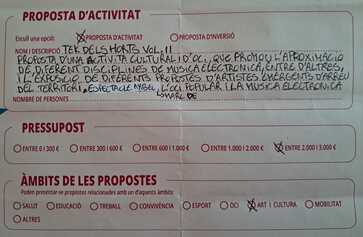 PROPOSTA D'ACTIVITAT
Escull una opció: PROPOSTA D'ACTIVITAT PROPOSTA D'INVERSIÓ
NOM I DESCRIPCIÓ TEK DELS HORTS VOL. II
PROPOSTA D'UNA ACTIVITA CULTURAL I D'OCI, QUE PROMOU L'APROXIMACIO
DE DIFERENT DISCIPLINES DE MUSICA ELECTRONICA, ENTRE D'ALTRES,
I L'EXPOSICIO DE DIFERENTS PROPOSTES D'ARTISTES EMERGENTS D'ARREU
DEL TERRITORI, ESPECTACLE L'OCI POPULAR I LA MUSICA ELECTRONICA
NOMBRE DE PERSONES
PRESSUPOST
ENTRE 0 I 300 € ENTRE 300 I 600 € ENTRE 600 I 1.000 € ENTRE 1.000 I 2.000 € ENTRE 2.000 I 3.000 €
ÀMBITS DE LES PROPOSTES
Poden presentar-se propostes relacionades amb un d'aquests àmbits:
SALUT EDUCACIÓ TREBALL CONVIVÈNCIA ESPORT OCI ART I CULTURA MOBILITAT
ALTRES